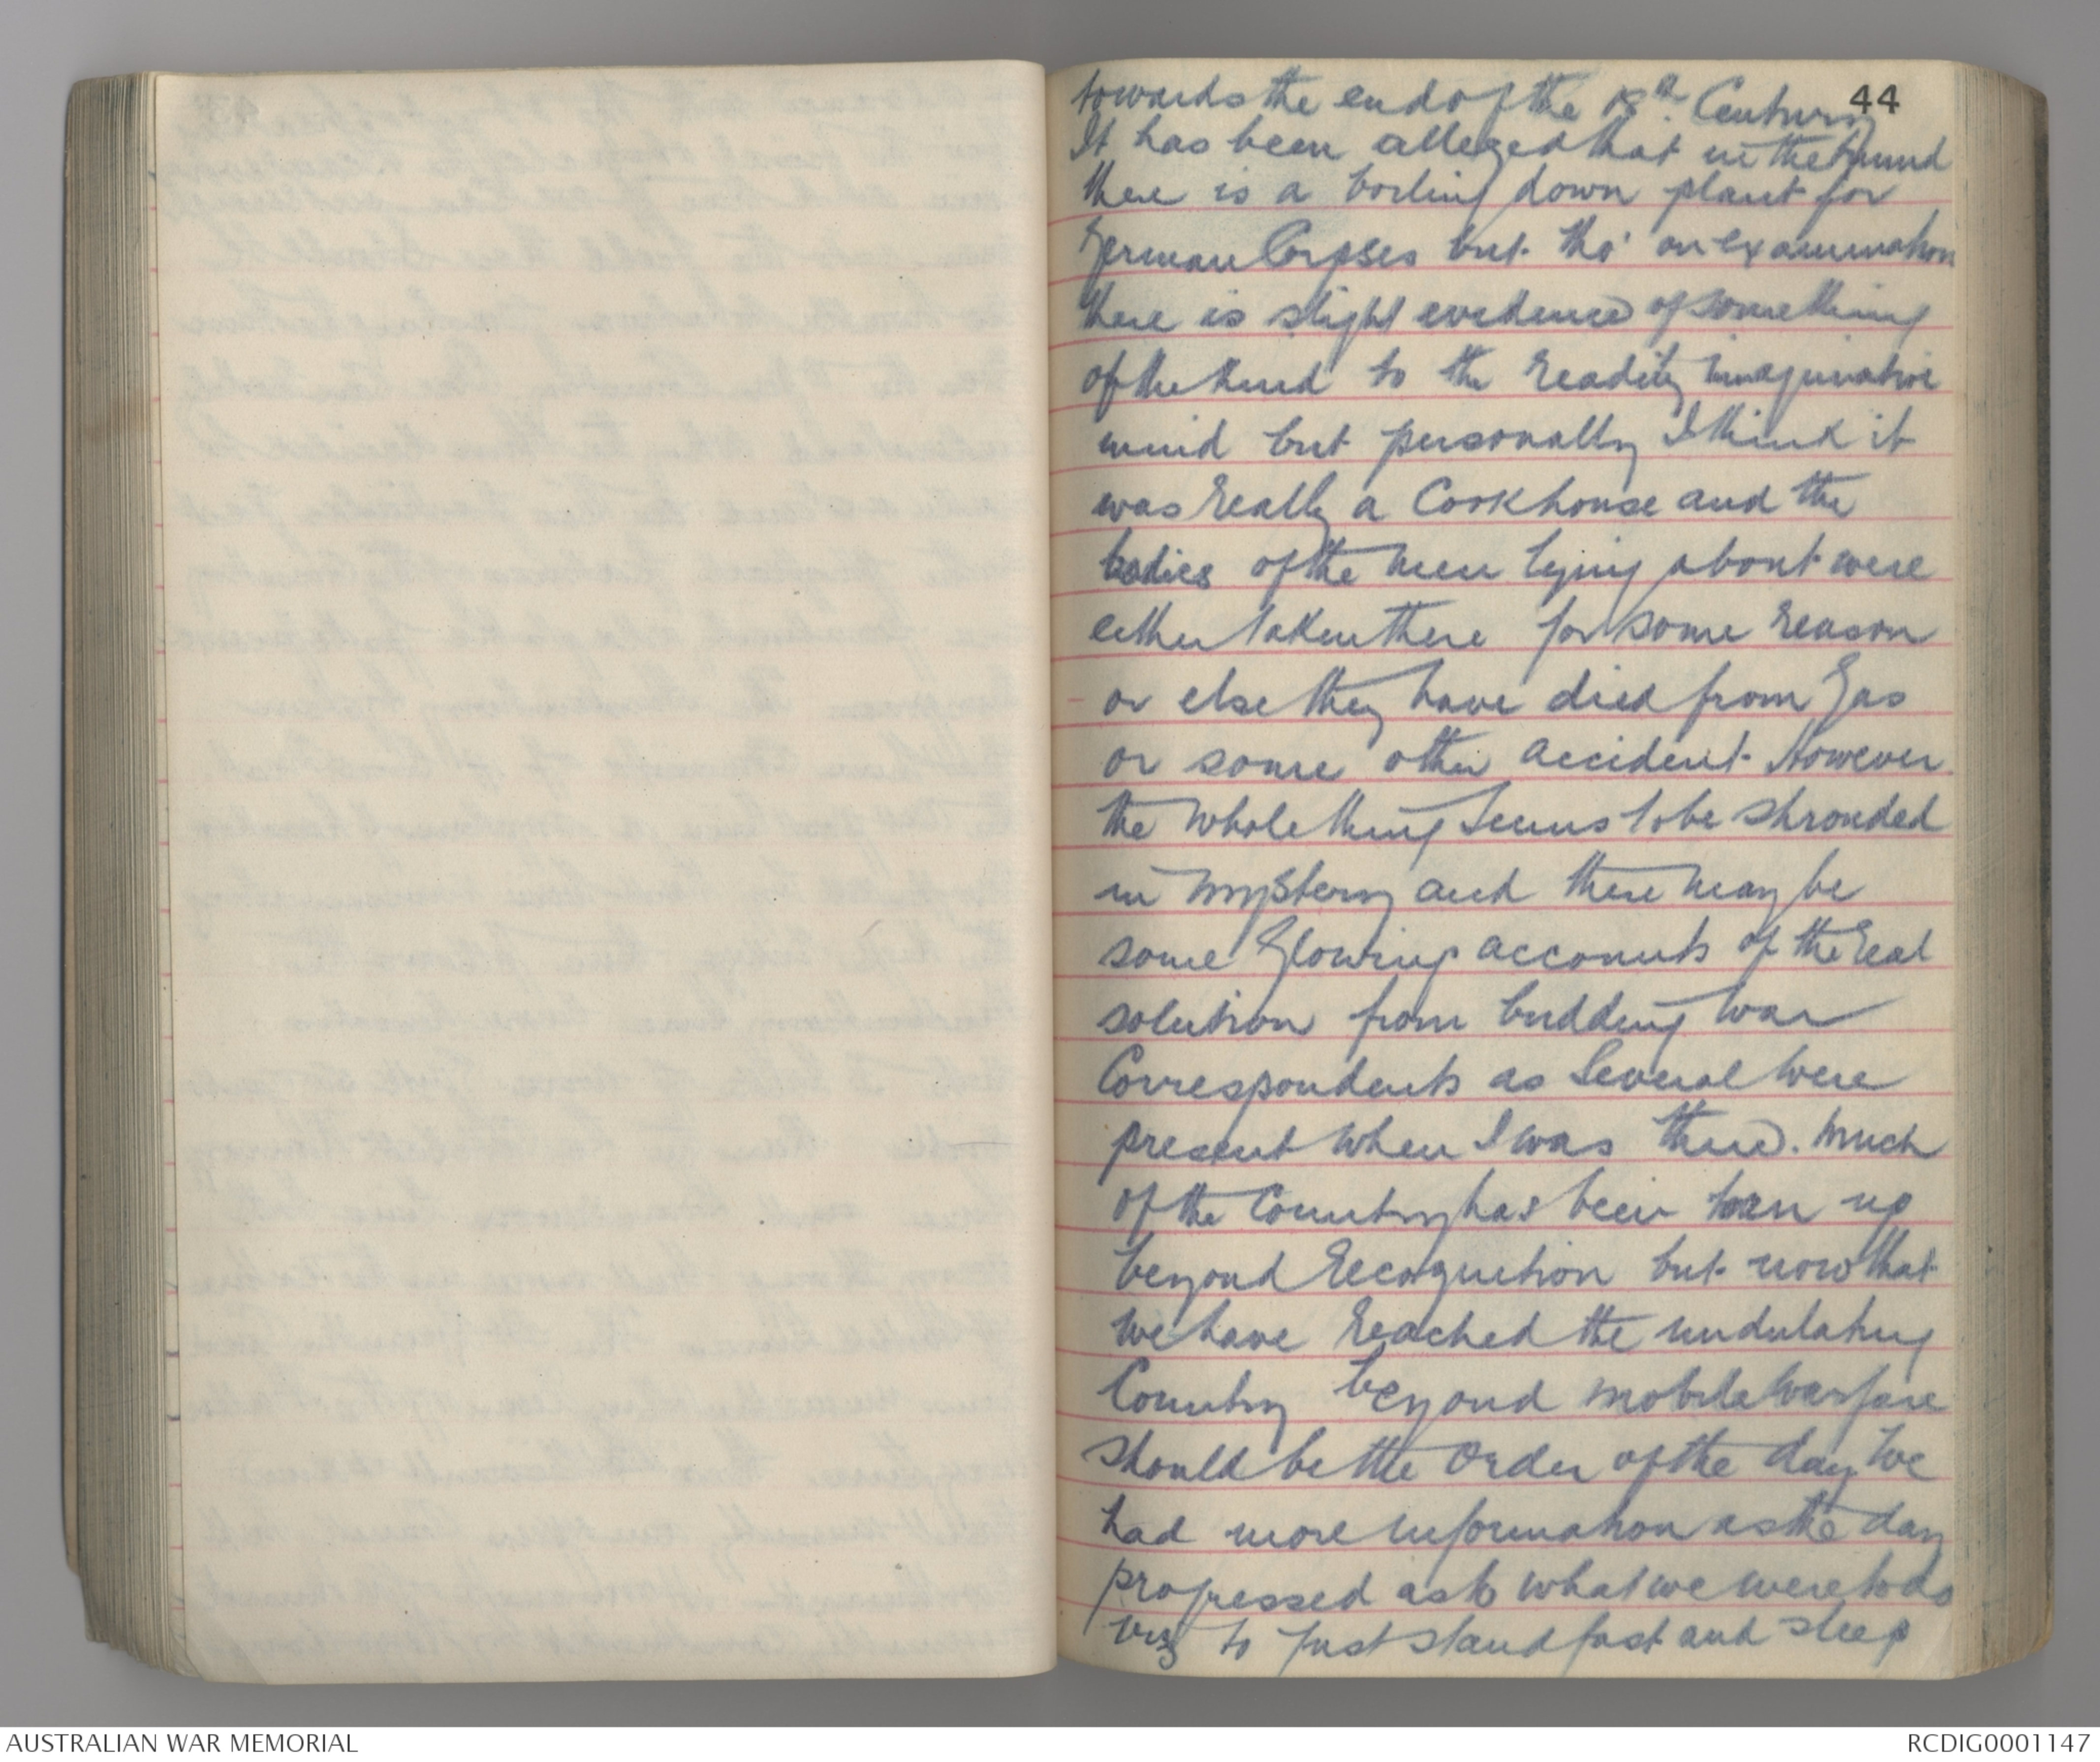 44
towards the end of the 18th Century
It has been alleged that in the tunnel
there is a boiling down plant for
German Corpses but tho' on examination
there is slight evidence of something
of the kind to the readily imaginative
mind but personally I think it
was really a Cookhouse and the
bodies of the men lying about were
either taken there for some reason
or else they have died from gas
or some other accident. However
the whole thing seems to be shrouded
in mystery and there may be
some glowing accounts of the real
solution from budding war
Correspondents as several were
present when I was there. Much
of the Country has been torn up
beyond recognition but now that
we have reached the undulating
Country beyond mobile warfare
should be the order of the day. We
had more information as the day
progressed as to what we were to do
viz to just stand fast and sleep
AUSTRALIAN WAR MEMORIAL
RCDIG0001147